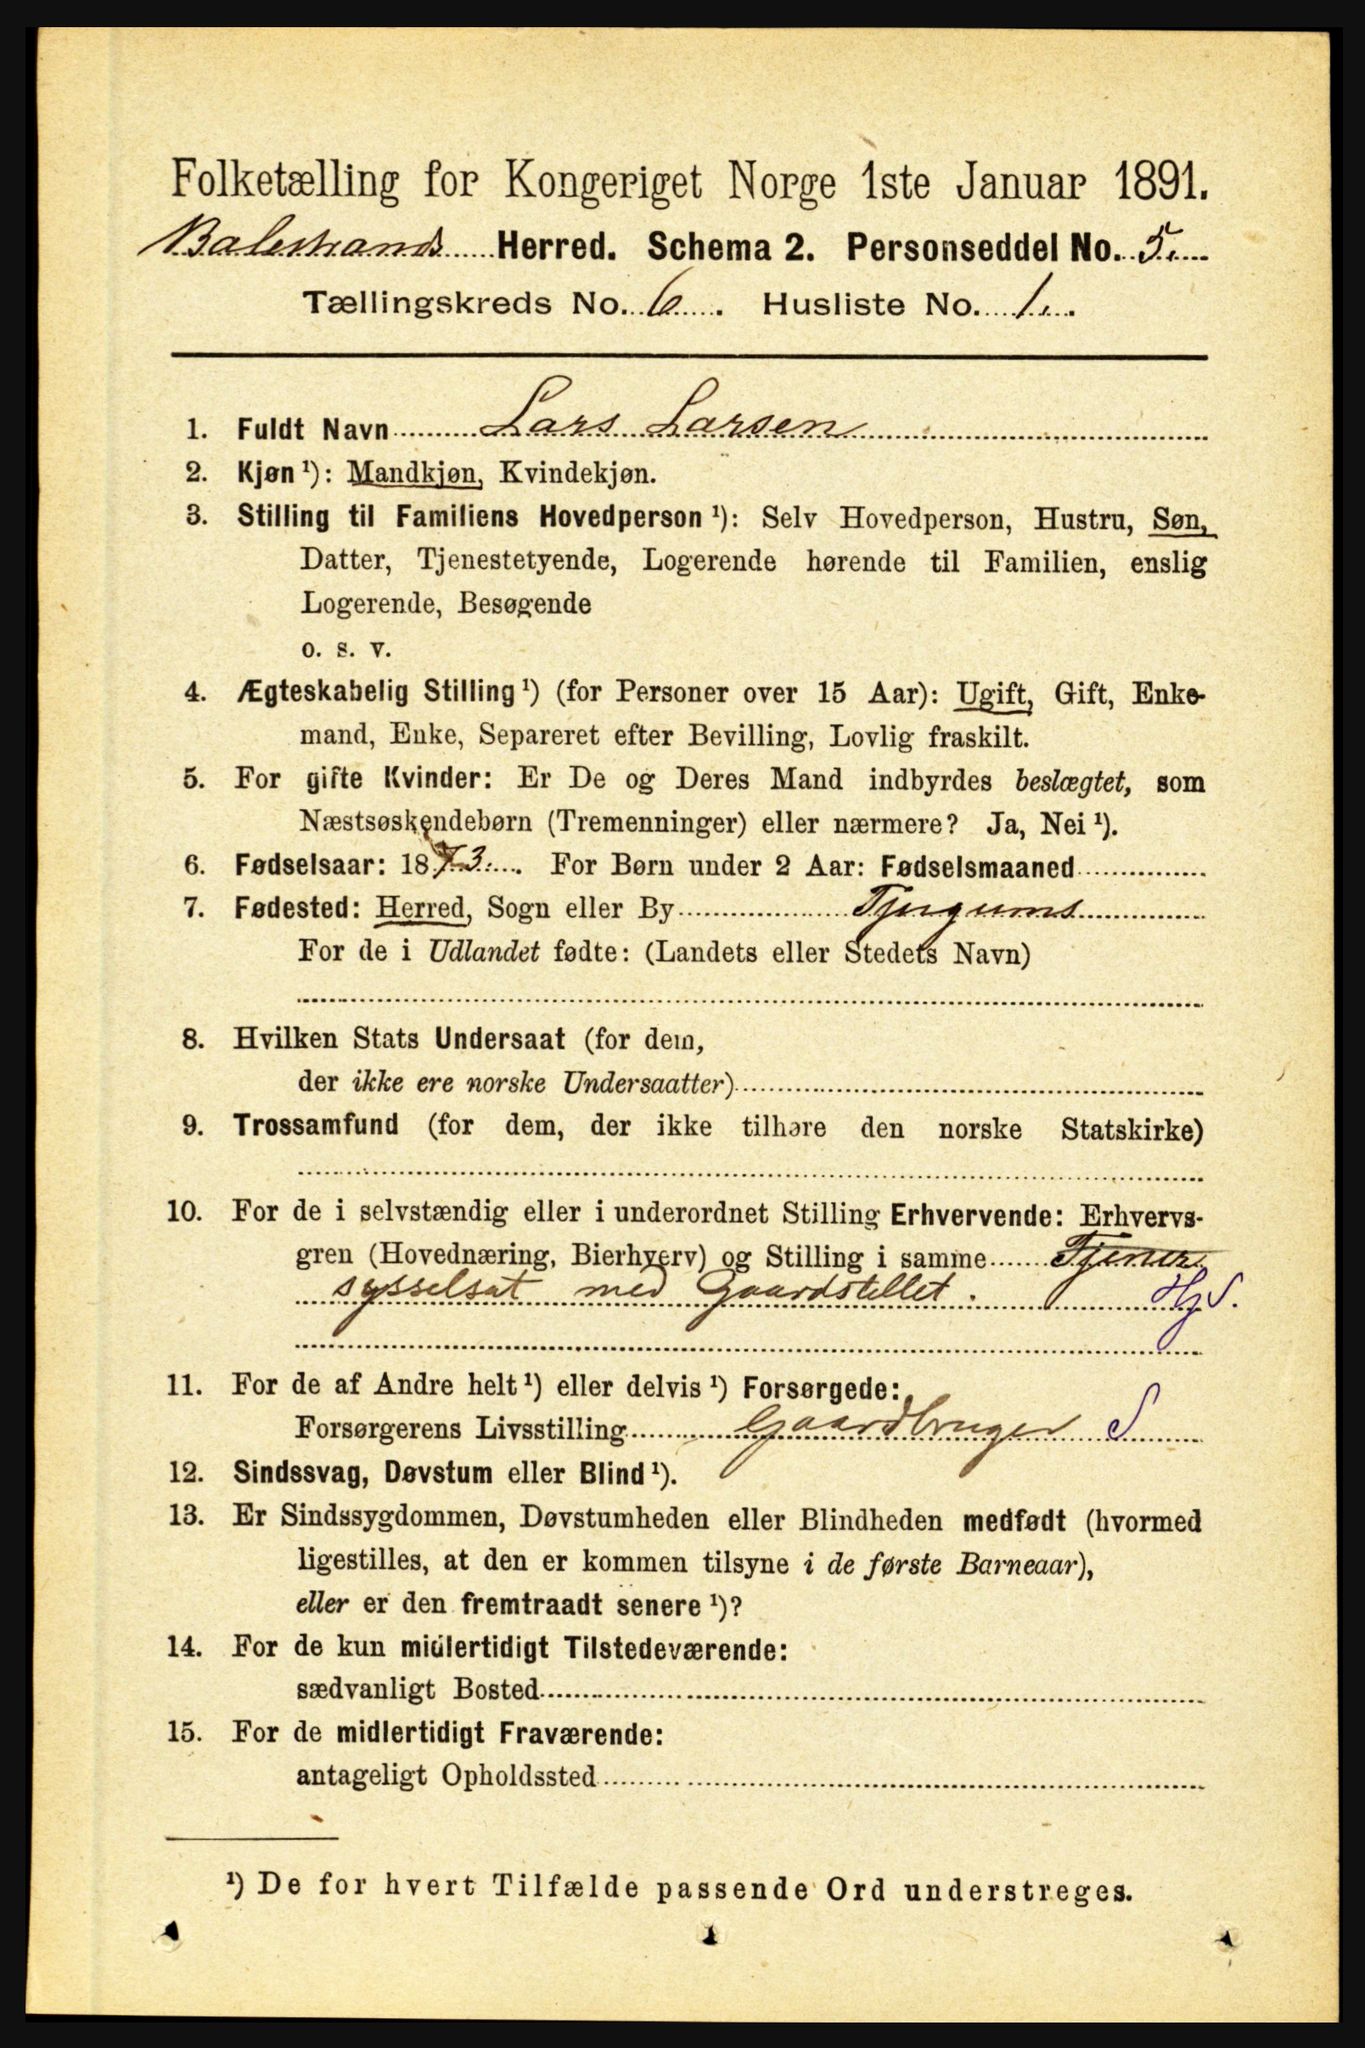 Folketælling for Kongeriget Norge 1ste Januar 1891.
Balestrands Herred. Schema 2. Personseddel No. 5.
Tællingskreds No. 6. Husliste No. 1.
1. Fuldt Navn Lars Larsen
2. Kjøn ¹): Mandkjøn, Kvindekjøn.
3. Stilling til Familiens Hovedperson ¹): Selv Hovedperson, Hustru, Søn,
Datter, Tjenestetyende, Logerende hørende til Familien, enslig
Logerende, Besøgende
o. s. v.
4. Ægteskabelig Stilling ¹) (for Personer over 15 Aar): Ugift, Gift, Enke-
mand, Enke, Separeret efter Bevilling, Lovlig fraskilt.
5. For gifte Kvinder: Er De og Deres Mand indbyrdes beslægtet, som
Næstsøskendebørn (Tremenninger) eller nærmere? Ja, Nei ¹).
6. Fødselsaar: 1873. For Børn under 2 Aar: Fødselsmaaned
7. Fødested: Herred, Sogn eller By Tjugums
For de i Udlandet fødte: (Landets eller Stedets Navn)
8. Hvilken Stats Undersaat (for dem,
der ikke ere norske Undersaatter)
9. Trossamfund (for dem, der ikke tilhøre den norske Statskirke)
10. For de i selvstændig eller i underordnet Stilling Erhvervende: Erhvervs-
gren (Hovednæring, Bierhverv) og Stilling i samme Tjener
sysselsat med Gaardstellet. HjS.
11. For de af Andre helt ¹) eller delvis ¹) Forsørgede:
Forsørgerens Livsstilling Gaardbruger S
12. Sindssvag, Døvstum eller Blind ¹).
13. Er Sindssygdommen, Døvstumheden eller Blindheden medfødt (hvormed
ligestilles, at den er kommen tilsyne i de første Barneaar),
eller er den fremtraadt senere ¹)?
14. For de kun midlertidigt Tilstedeværende:
sædvanligt Bosted
15. For de midlertidigt Fraværende:
antageligt Opholdssted
¹) De for hvert Tilfælde passende Ord understreges.